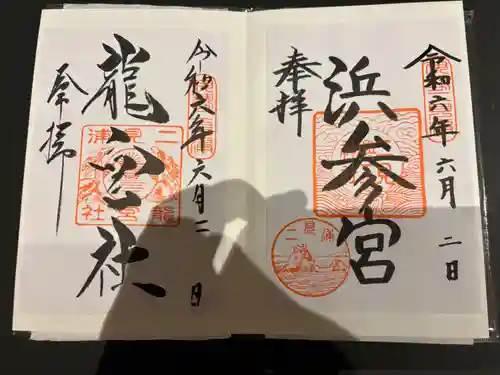 令和六年六月二日
奉拝
浜参宮
二見浦
令和六年六月二日
龍宮社
奉拝
二見浦
龍宮社